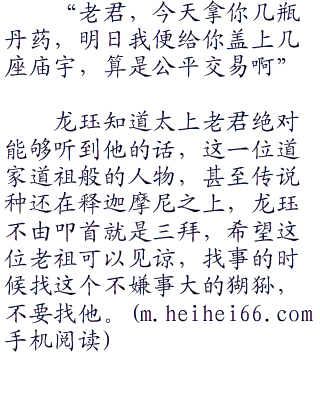 “老君，今天拿你几瓶
丹药，明日我便给你盖上几
座庙宇，算是公平交易啊”
龙珏知道太上老君绝对
能够听到他的话，这一位道
家道祖般的人物，甚至传说
种还在释迦摩尼之上，龙珏
不由叩首就是三拜，希望这
位老祖可以见谅，找事的时
候找这个不嫌事大的猢狲，
不要找他。(m.heihei66.com
手机阅读)